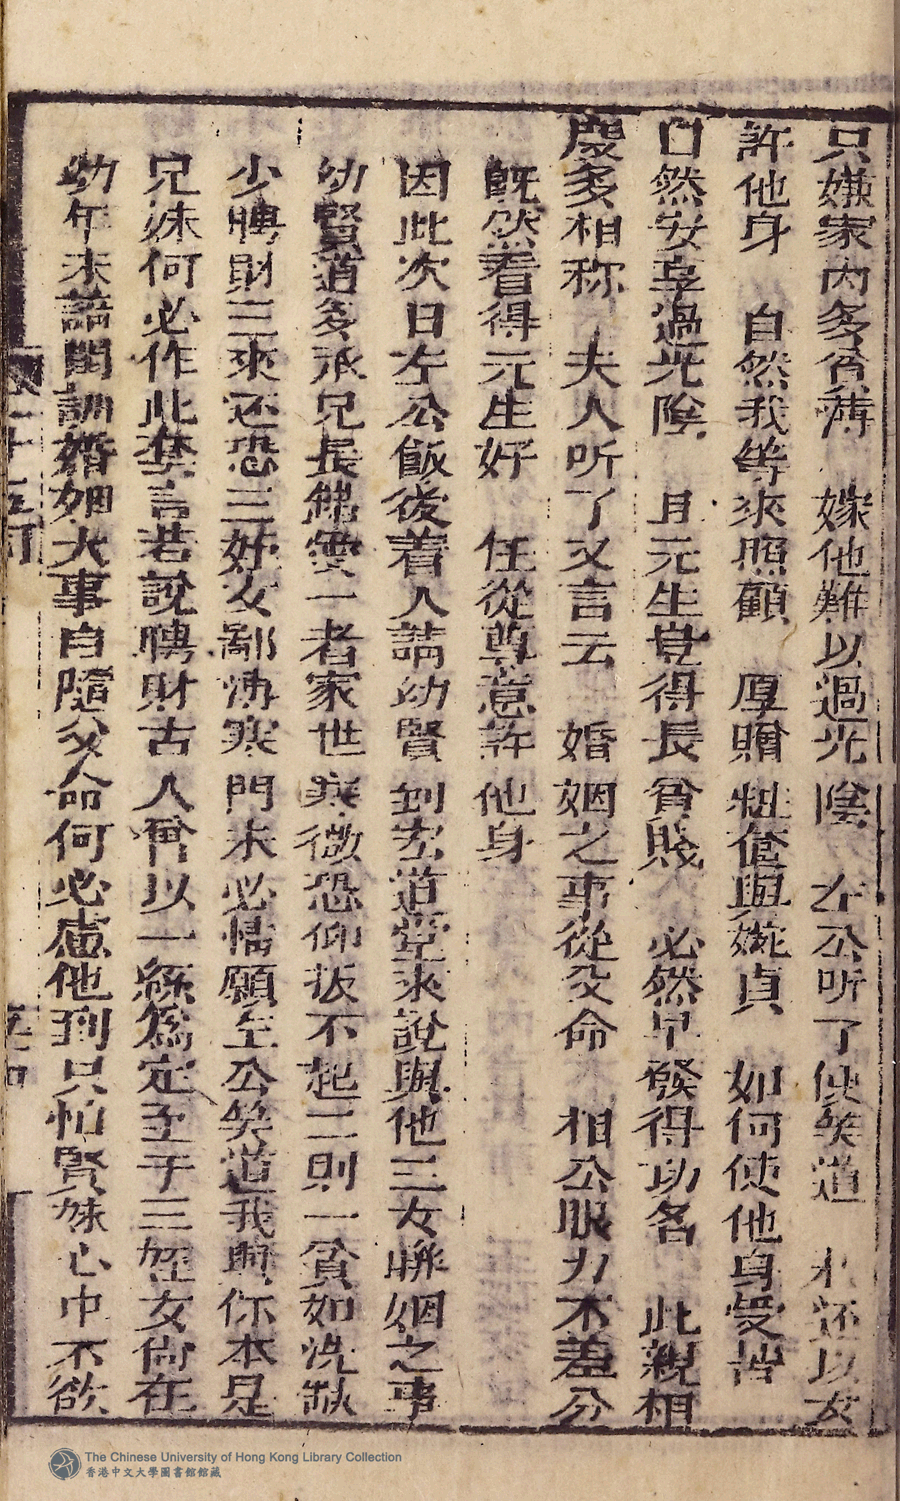 只嫌家內多貧薄 嫁他難以過光陰 左公听了便笑道 未还以女
許他身 自然我等來照顧 厚贈粧奩與婉貞 如何使他身受苦
自然安享過光陰 且元生豈得長貧賤 必然早發得功名 此親相
慶多相称 夫人听了又言云 婚姻之事從父命 相公眼力不差分
既然看得元生好 任從尊意許他身
因此次日左公飯後着人請幼賢到左道堂來說與他三女聯姻之事
幼賢道多承兄長錯愛一者家世寒微恐仰扳不起二則一貧如洗缺
少聘財三來还恐三姪女鄙沛寒門未必情願左公笑道我與你本是
兄妹何必作此套言若說聘財古人曾以一絲為定至于三姪女尙在
幼年未諳閨訓婚姻大事自隨父命何必慮他到只怕賢妹心中不欲
The Chinese University of Hong Kong Library Collection
香港中文大學圖書館館藏